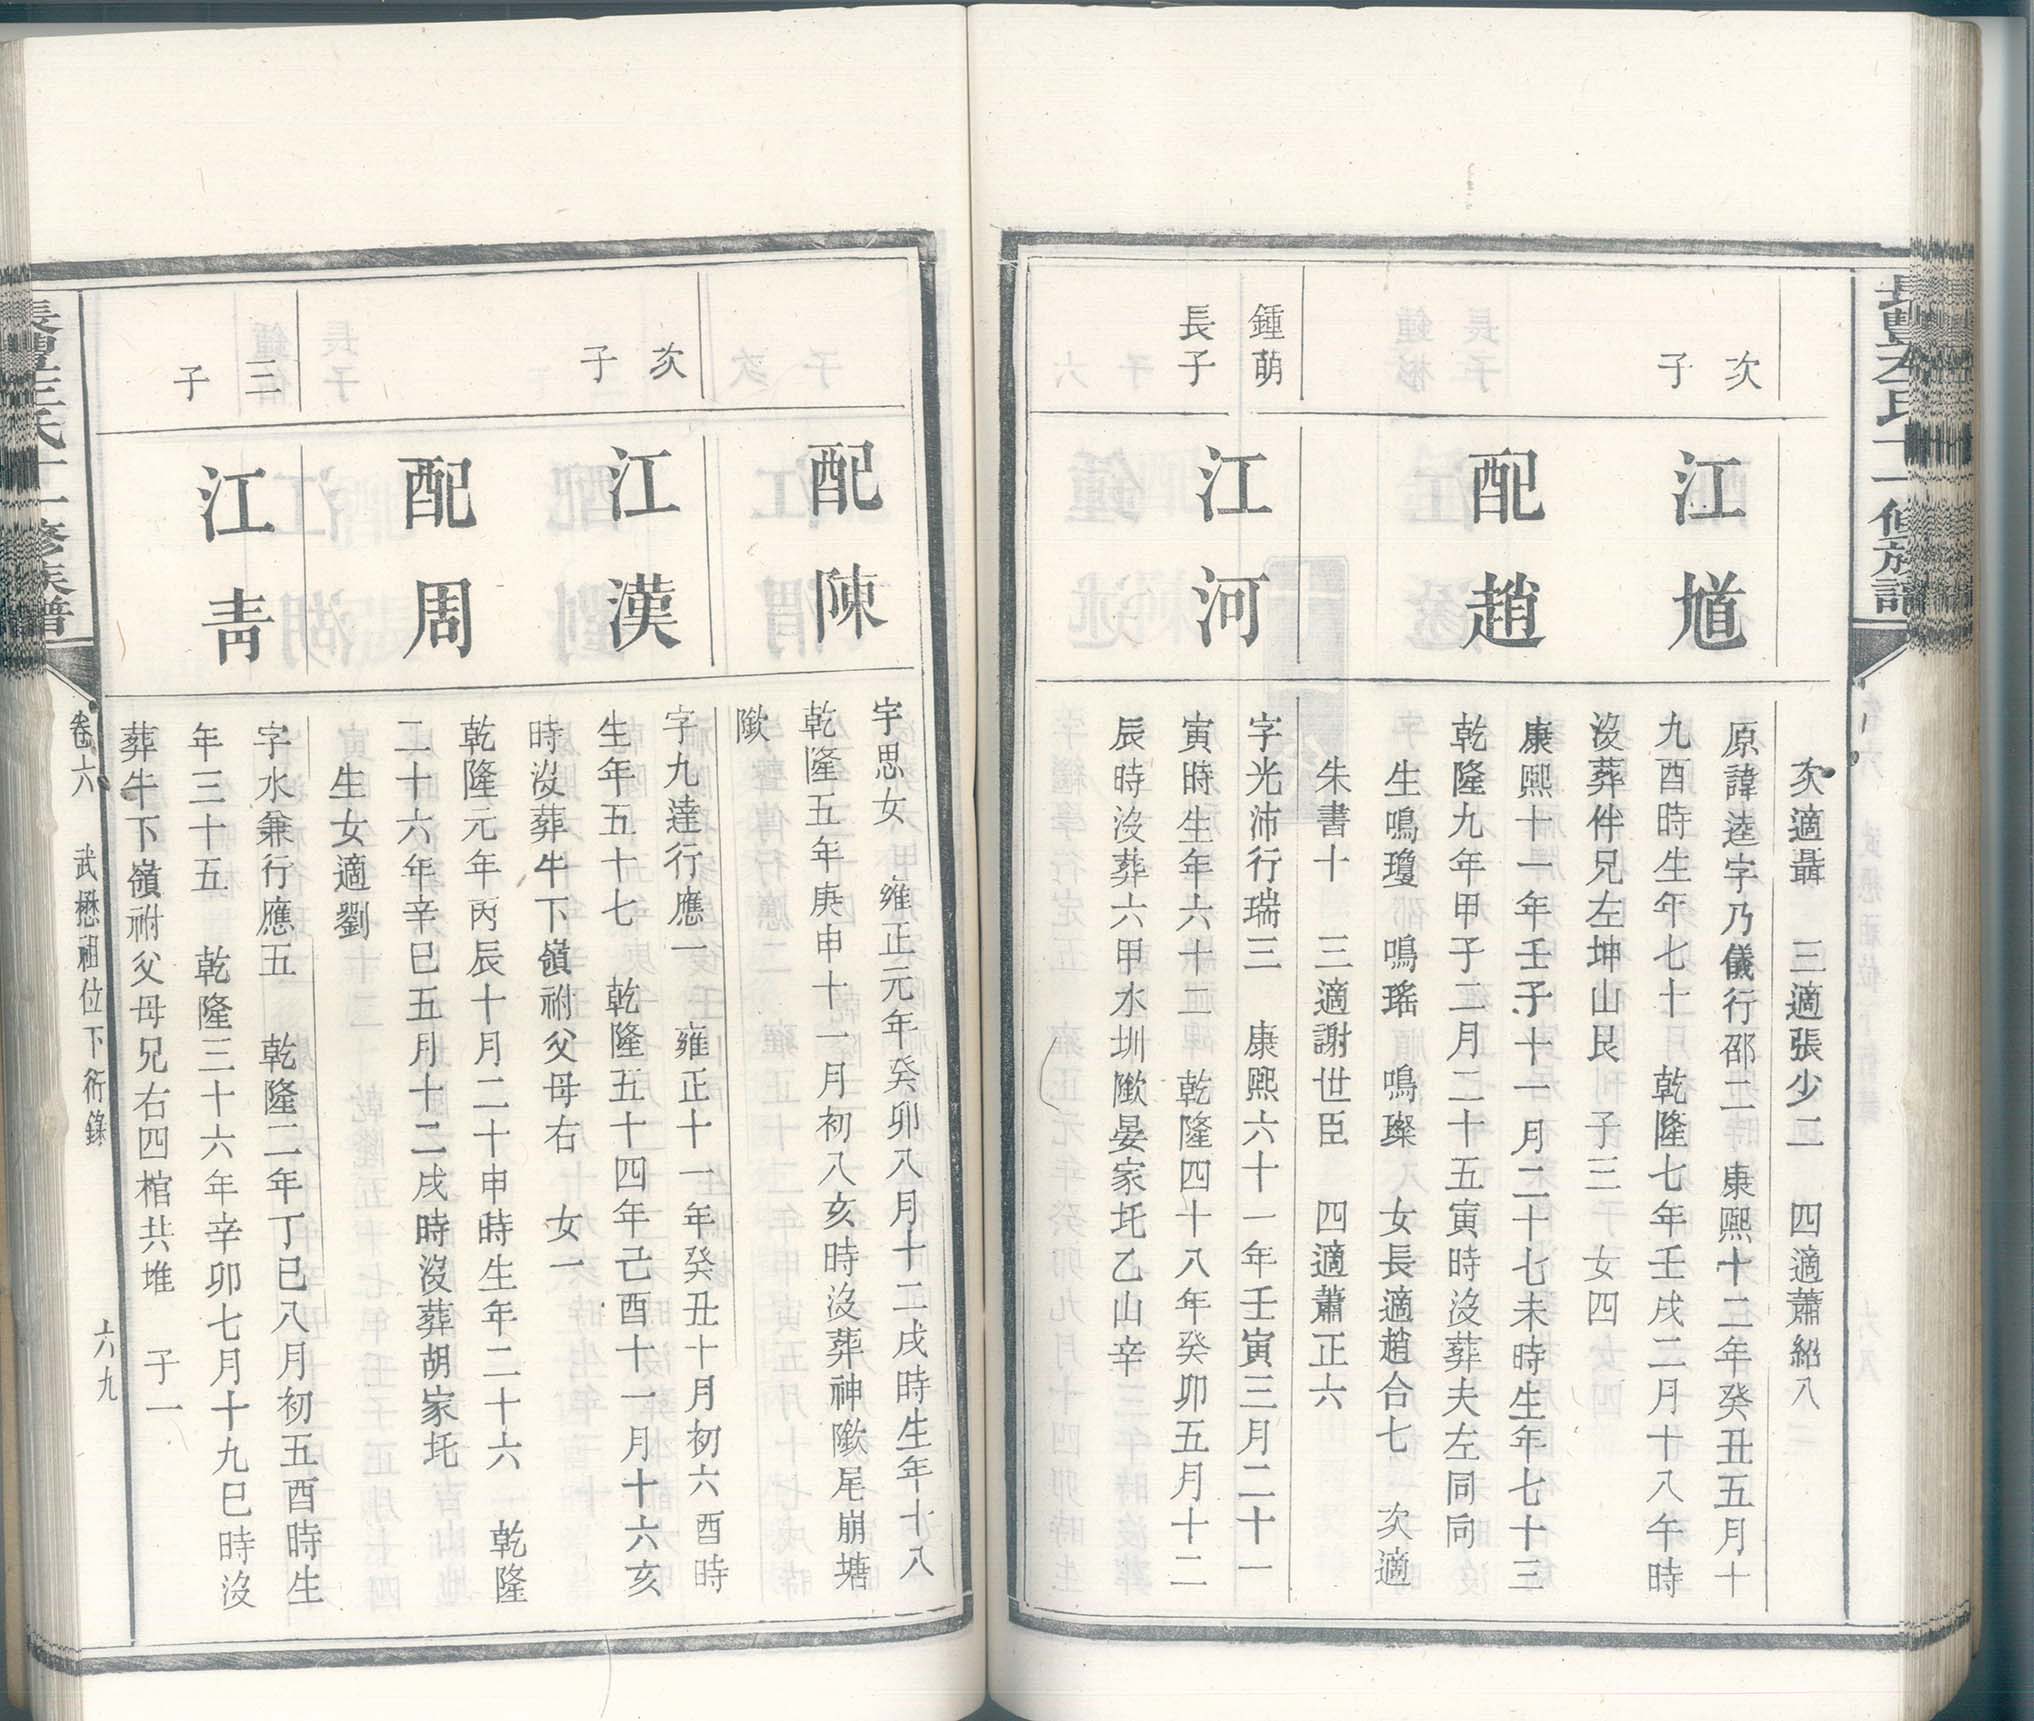 次適聶　三適張少二　四適蕭紹八
次子
江馗
原諱逵字乃儀行邵二　康熙十二年癸丑五月十
九酉時生年七十　乾隆七年壬戌二月十八午時
沒葬伴兄左坤山艮　子三　女四
配趙
康熙十一年壬子十一月二十七未時生年七十三
乾隆九年甲子二月二十五寅時沒葬夫左同向
生鳴瓊　鳴瑤　鳴璨　女長適趙合七　次適
朱書十　三適謝世臣　四適蕭正六
鍾萌
長子
江河
字光沛行瑞三　康熙六十一年壬寅三月二十一
寅時生年六十二　乾隆四十八年癸卯五月十二
辰時沒葬六甲水圳隞晏家圫乙山辛
配陳
字思女　雍正元年癸卯八月十二戌時生年十八
乾隆五年庚申十一月初八亥時沒葬神隞尾崩塘
隞
次子
江漢
字九達行應一　雍正十一年癸丑十月初六酉時
生年五十七　乾隆五十四年己酉十一月十六亥
時沒葬牛下嶺祔父母右　女一
配周
乾隆元年丙辰十月二十申時生年二十六　乾隆
二十六年辛巳五月十二戌時沒葬胡家圫
生女適劉
三子
江青
字水兼行應五　乾隆二年丁巳八月初五酉時生
年三十五　乾隆三十六年辛卯七月十九巳時沒
葬牛下嶺祔父母兄右四棺共堆　子一
氏十一修族譜
卷六　武懋祖位下衍錄　六九